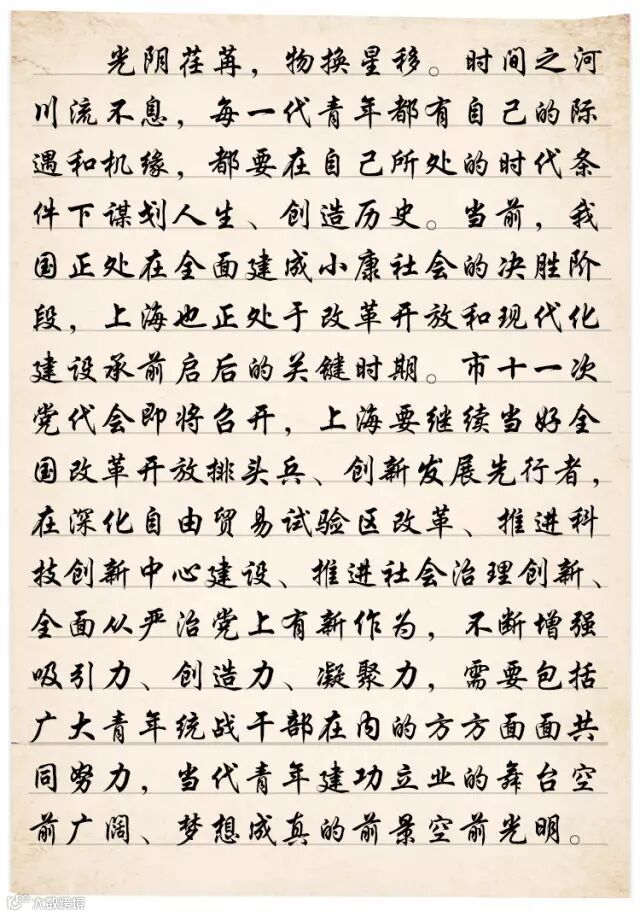 光阴荏苒，物换星移。时间之河
川流不息，每一代青年都有自己的际
遇和机缘，都要在自己所处的时代条
件下谋划人生、创造历史。当前，我
国正处在全面建成小康社会的决胜阶
段，上海也正处于改革开放和现代化
建设承前启后的关键时期。市十一次
党代会即将召开，上海要继续当好全
国改革开放排头兵、创新发展先行者，
在深化自由贸易试验区改革、推进科
技创新中心建设、推进社会治理创新、
全面从严治党上有新作为，不断增强
吸引力、创造力、凝聚力，需要包括
广大青年统战干部在内的方方面面共
同努力，当代青年建功立业的舞台空
前广阔、梦想成真的前景空前光明。
大数跨境